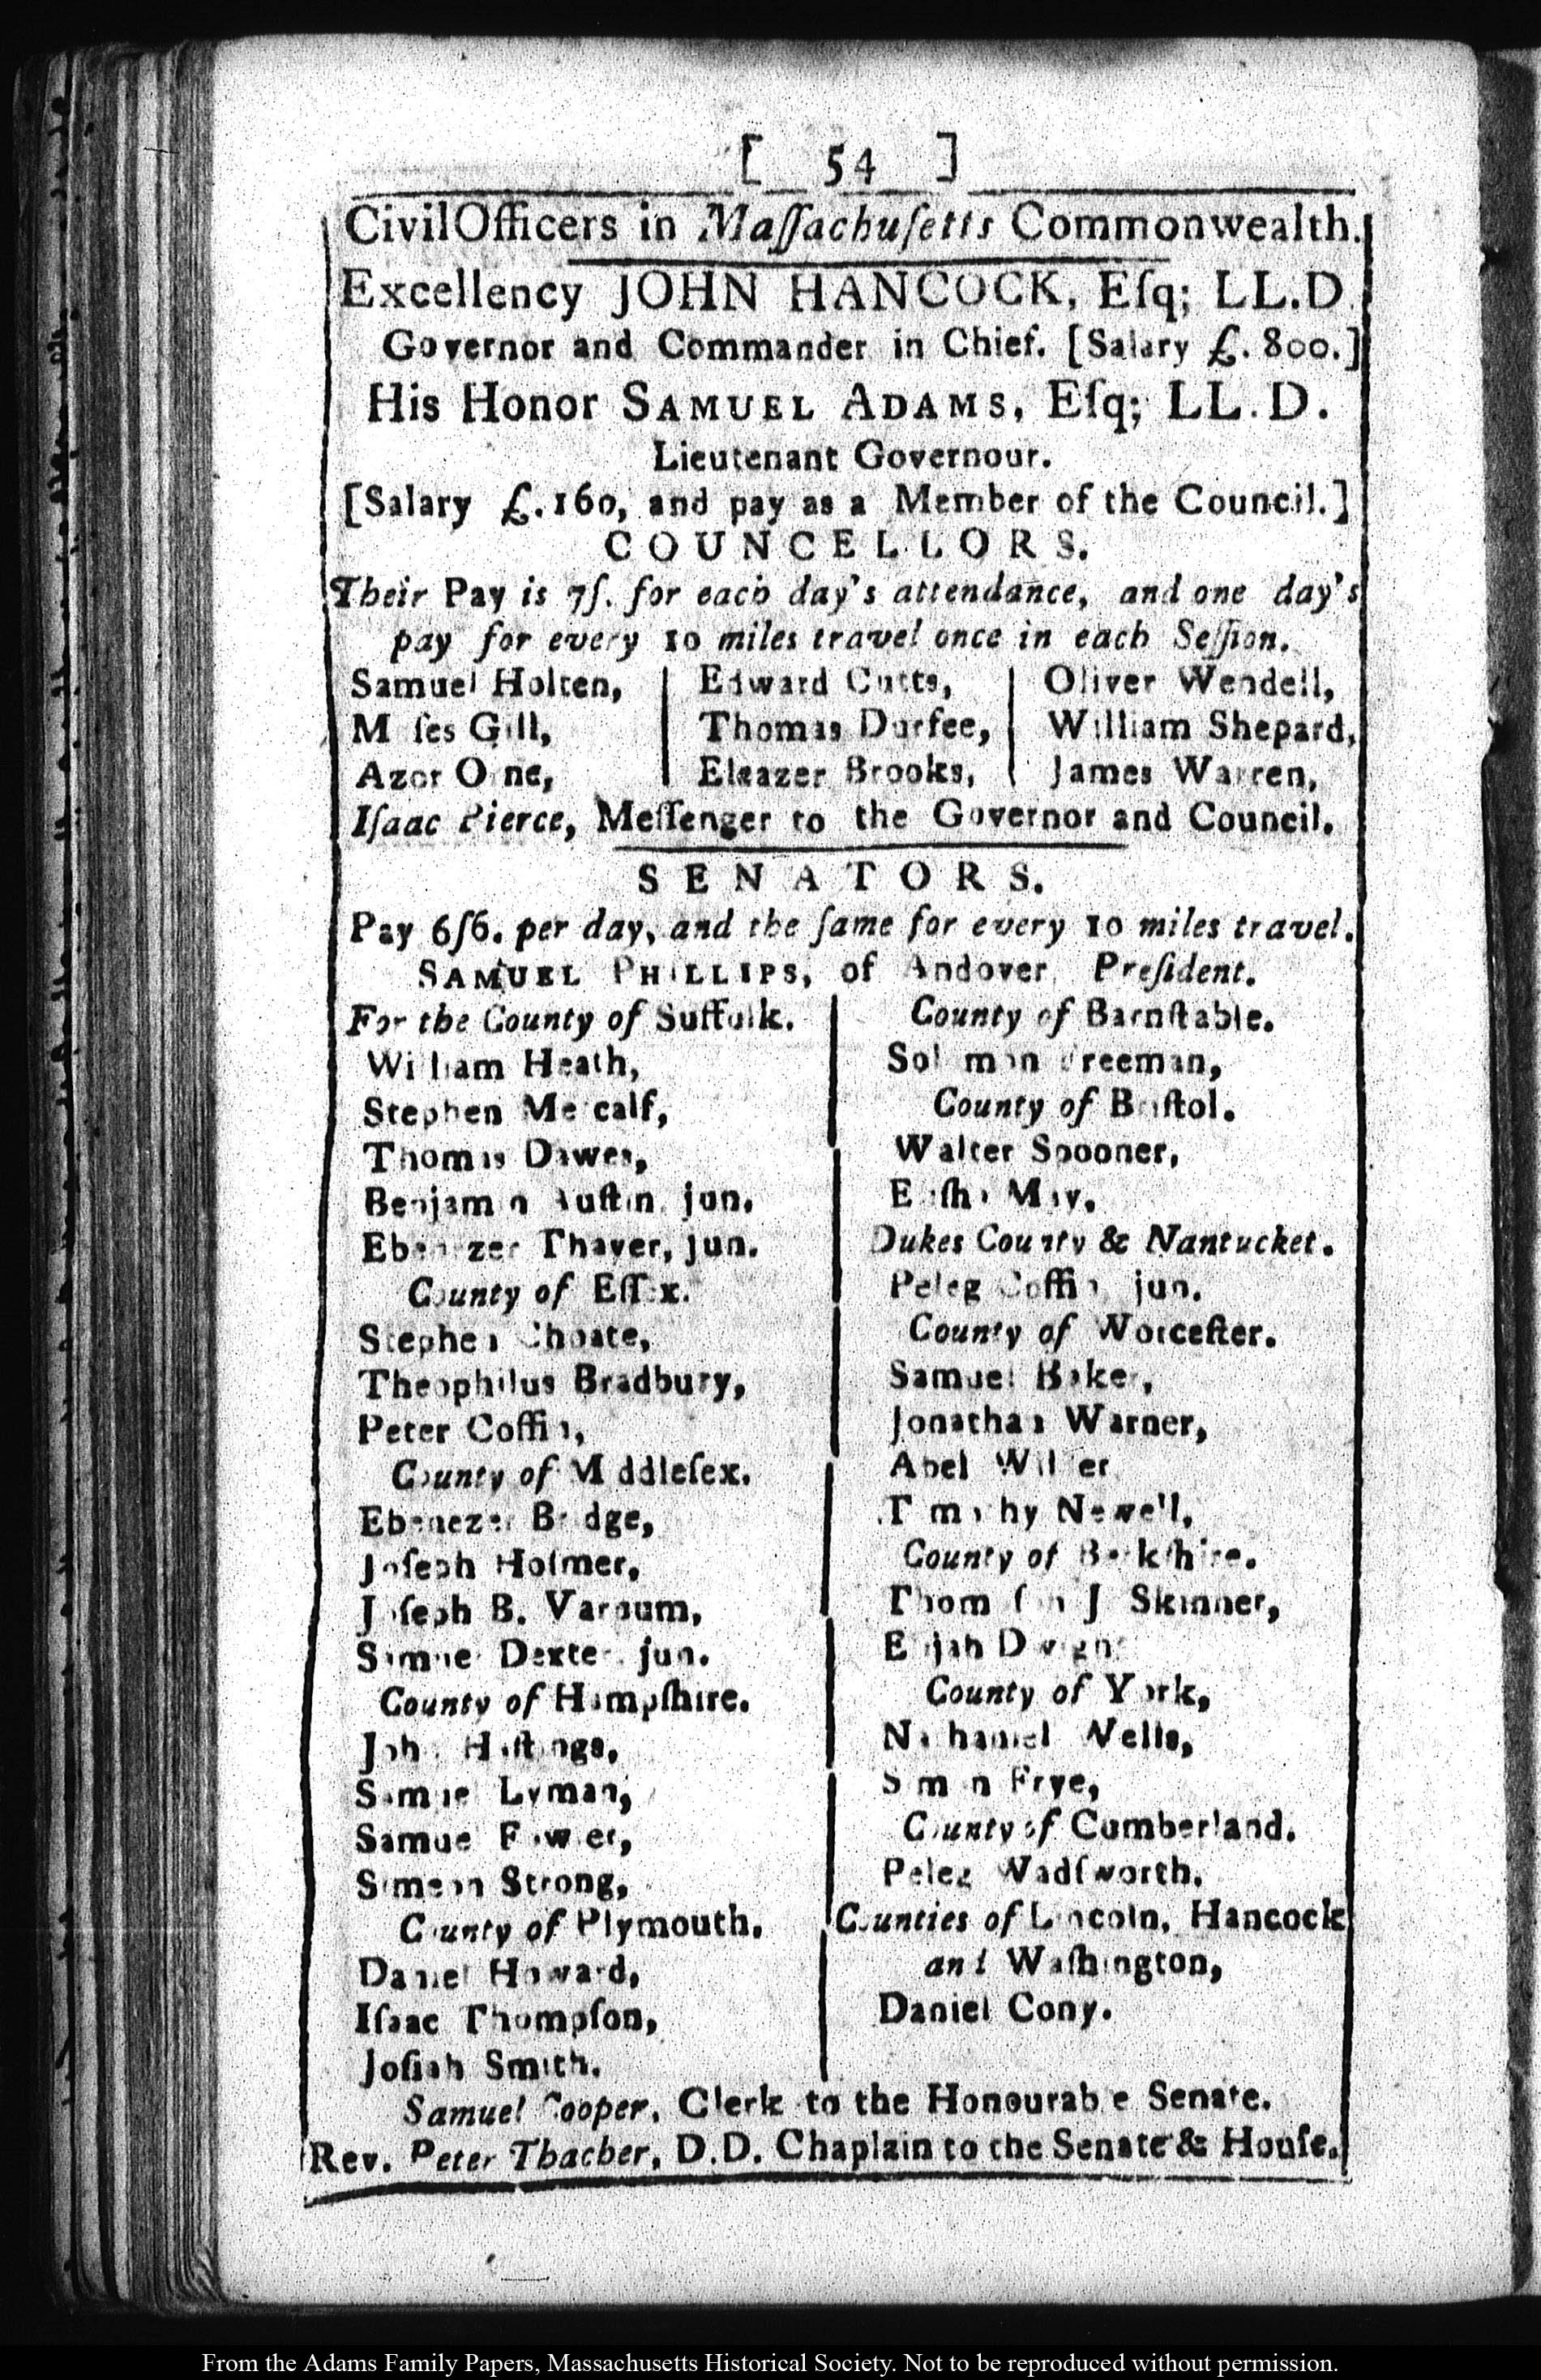 [ 54 ]
Civil Officers in Maſſachuſetts Commonwealth.
Excellency JOHN HANCOCK, Eſq; LL.D.
Governor and Commander in Chief. [Salary £. 800.]
His Honor SAMUEL ADAMS, Eſq; LL.D.
Lieutenant Governour.
[Salary £.160, and pay as a Member of the Council.]
COUNCELLORS.
Their Pay is 7ſ. for each day's attendance, and one day's
pay for every 10 miles travel once in each Seſſion.
Samuel Holten,
Moſes Gill,
Azor Orne,
Edward Cutts,
Thomas Durfee,
Eleazer Brooks,
Oliver Wendell,
William Shepard,
James Warren,
Iſaac Pierce, Meſſenger to the Governor and Council.
SENATORS.
Pay 6ſ6. per day, and the ſame for every 10 miles travel.
SAMUEL PHILLIPS, of Andover, Preſident.
For the County of Suffolk.
William Heath,
Stephen Metcalf,
Thomas Dawes,
Benjamin Auſtin, jun.
Ebenezer Thayer, jun.
County of Eſſex.
Stephen Choate,
Theophilus Bradbury,
Peter Coffin,
County of Middleſex.
Ebenezer Bridge,
Joſeph Hoſmer,
Joſeph B. Varnum,
Samuel Dexter, jun.
County of Hampſhire.
John Haſtings,
Samuel Lyman,
Samuel Fowler,
Simeon Strong,
County of Plymouth.
Daniel Howard,
Iſaac Thompſon,
Joſiah Smith.
County of Barnſtable.
Solomon Freeman,
County of Briſtol.
Walter Spooner,
Eliſha May,
Dukes County & Nantucket.
Peleg Coffin, jun.
County of Worceſter.
Samuel Baker,
Jonathan Warner,
Abel Wilder
Timothy Newell,
County of Berkſhire.
Thomſon J Skinner,
Elijah Dwight
County of York,
Nathaniel Wells,
Simon Frye,
County of Cumberland.
Peleg Wadſworth.
Counties of Lincoln, Hancock
and Waſhington,
Daniel Cony.
Samuel Cooper, Clerk to the Honourable Senate.
Rev. Peter Thacher, D.D. Chaplain to the Senate & Houſe.
From the Adams Family Papers, Massachusetts Historical Society. Not to be reproduced without permission.